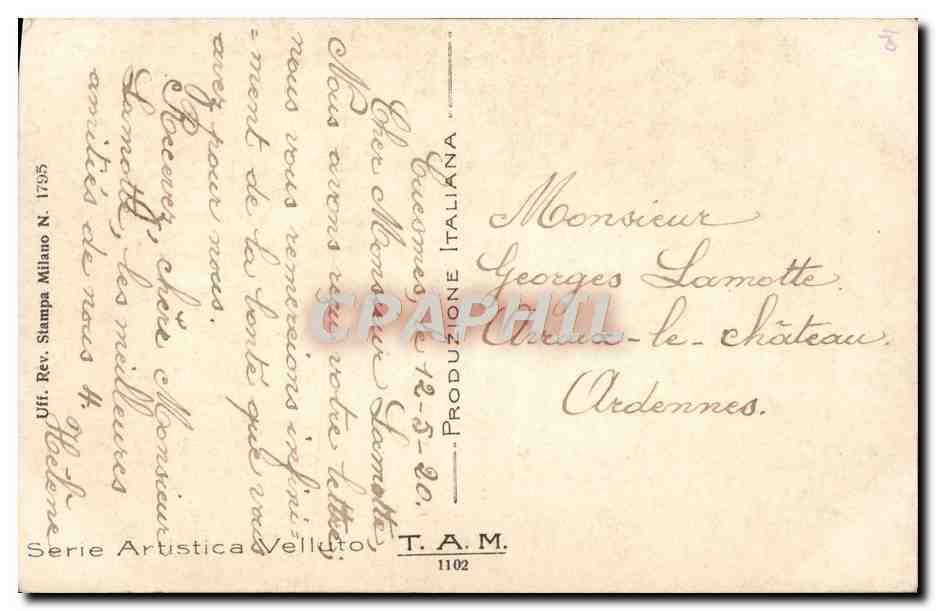 Cuesmes, le 12-5-20.
Cher Monsieur Lamotte,
Nous avons reçu votre lettre,
nous vous remercions infini=
=ment de la bonté que vous
avez pour nous.
Recevez, chèrs Monsieur
Lamotte, les meilleures
amitiés de nous 4.
Hélène
PRODUZIONE ITALIANA
Monsieur
Georges Lamotte.
-le-château.
Ardennes.
Uff. Rev. Stampa Milano N. 1795
Serie Artistica Velluto
T. A. M.
1102
CPAPHIL